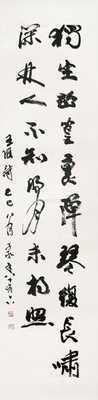 獨坐幽篁裏彈琴復長嘯
深林人不知明月来相照
王維詩 己巳八月 八十六